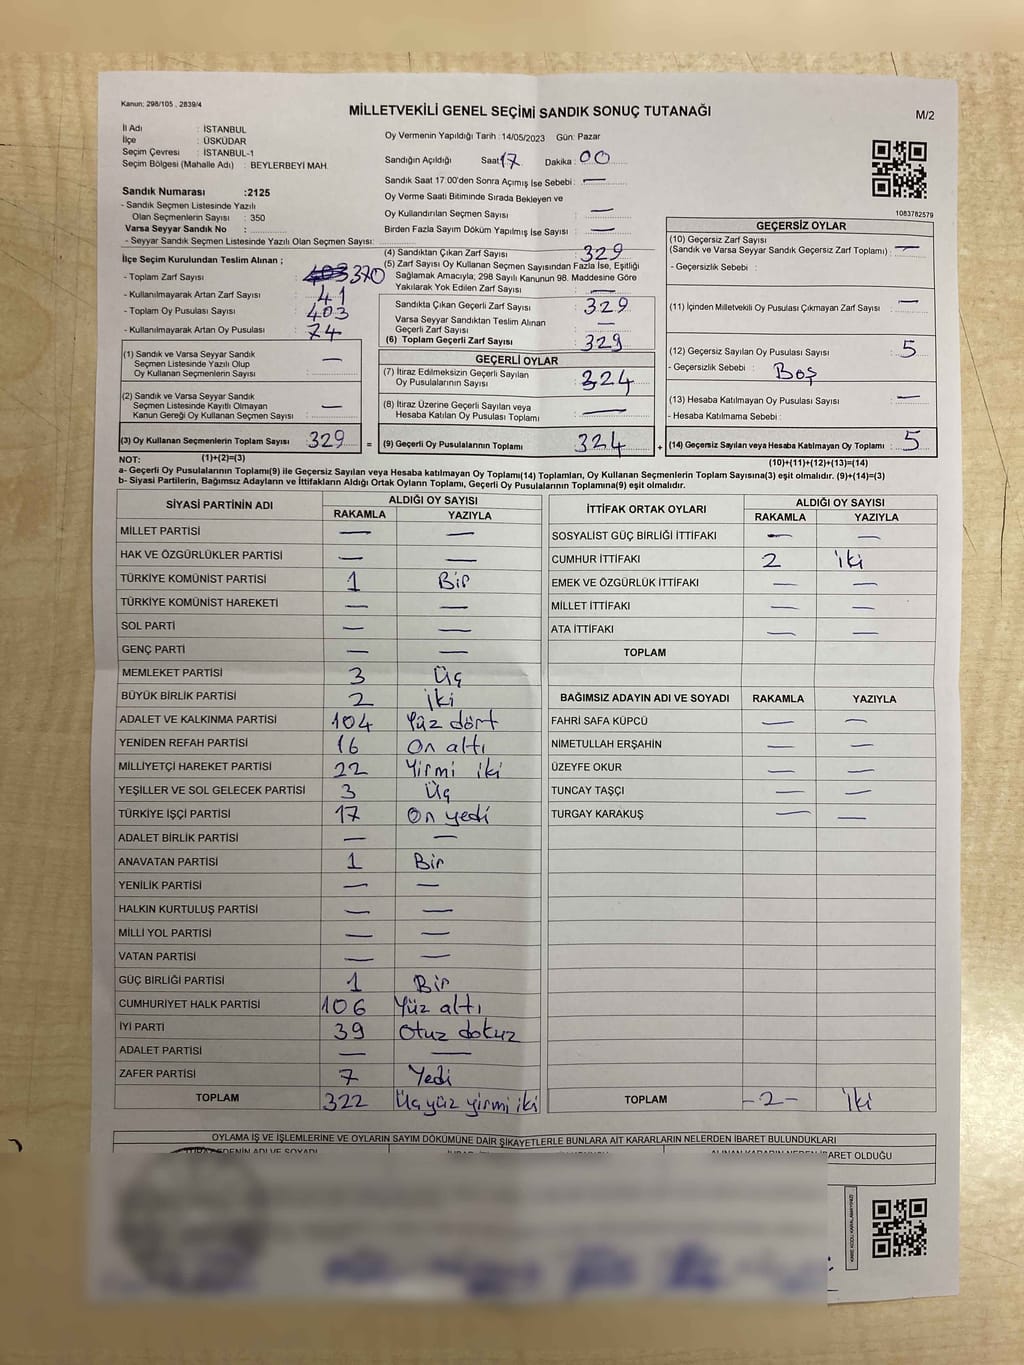 Kanun; 298/105 , 2839/4
MİLLETVEKİLİ GENEL SEÇİMİ SANDIK SONUÇ TUTANAĞI
M/2
İl Adı : İSTANBUL
İlçe : ÜSKÜDAR
Seçim Çevresi : İSTANBUL-1
Seçim Bölgesi (Mahalle Adı) : BEYLERBEYİ MAH.
Sandık Numarası :2125
- Sandık Seçmen Listesinde Yazılı
Olan Seçmenlerin Sayısı : 350
Varsa Seyyar Sandık No :
- Seyyar Sandık Seçmen Listesinde Yazılı Olan Seçmen Sayısı:
Oy Vermenin Yapıldığı Tarih :14/05/2023 Gün: Pazar
Sandığın Açıldığı Saat 17 Dakika : 00
Sandık Saat 17:00'den Sonra Açımış İse Sebebi : —
Oy Verme Saati Bitiminde Sırada Bekleyen ve
Oy Kullandırılan Seçmen Sayısı —
Birden Fazla Sayım Döküm Yapılmış İse Sayısı : —
1083782579
İlçe Seçim Kurulundan Teslim Alınan ;
- Toplam Zarf Sayısı : 403 370
- Kullanılmayarak Artan Zarf Sayısı : 41
- Toplam Oy Pusulası Sayısı : 403
- Kullanılmayarak Artan Oy Pusulası : 74
(1) Sandık ve Varsa Seyyar Sandık
Seçmen Listesinde Yazılı Olup
Oy Kullanan Seçmenlerin Sayısı : —
(2) Sandık ve Varsa Seyyar Sandık
Seçmen Listesinde Kayıtlı Olmayan
Kanun Gereği Oy Kullanan Seçmen Sayısı : —
(3) Oy Kullanan Seçmenlerin Toplam Sayısı : 329 =
(1)+(2)=(3)
(4) Sandıktan Çıkan Zarf Sayısı : 329
(5) Zarf Sayısı Oy Kullanan Seçmen Sayısından Fazla İse, Eşitliği
Sağlamak Amacıyla; 298 Sayılı Kanunun 98. Maddesine Göre
Yakılarak Yok Edilen Zarf Sayısı : —
Sandıkta Çıkan Geçerli Zarf Sayısı : 329
Varsa Seyyar Sandıktan Teslim Alınan
Geçerli Zarf Sayısı : —
(6) Toplam Geçerli Zarf Sayısı : 329
GEÇERLİ OYLAR
(7) İtiraz Edilmeksizin Geçerli Sayılan
Oy Pusulalarının Sayısı : 324
(8) İtiraz Üzerine Geçerli Sayılan veya
Hesaba Katılan Oy Pusulası Toplamı : —
(9) Geçerli Oy Pusulalarının Toplamı : 324 +
GEÇERSİZ OYLAR
(10) Geçersiz Zarf Sayısı
(Sandık ve Varsa Seyyar Sandık Geçersiz Zarf Toplamı) : —
- Geçersizlik Sebebi :
(11) İçinden Milletvekili Oy Pusulası Çıkmayan Zarf Sayısı : —
(12) Geçersiz Sayılan Oy Pusulası Sayısı : 5
- Geçersizlik Sebebi : Boş
(13) Hesaba Katılmayan Oy Pusulası Sayısı : —
- Hesaba Katılmama Sebebi :
(14) Geçersiz Sayılan veya Hesaba Katılmayan Oy Toplamı : 5
(10)+(11)+(12)+(13)=(14)
NOT:
a- Geçerli Oy Pusulalarının Toplamı(9) ile Geçersiz Sayılan veya Hesaba katılmayan Oy Toplamı(14) Toplamları, Oy Kullanan Seçmenlerin Toplam Sayısına(3) eşit olmalıdır. (9)+(14)=(3)
b- Siyasi Partilerin, Bağımsız Adayların ve İttifakların Aldığı Ortak Oyların Toplamı, Geçerli Oy Pusulalarının Toplamına(9) eşit olmalıdır.
SİYASİ PARTİNİN ADI ALDIĞI OY SAYISI
RAKAMLA YAZIYLA
MİLLET PARTİSİ — —
HAK VE ÖZGÜRLÜKLER PARTİSİ — —
TÜRKİYE KOMÜNİST PARTİSİ 1 Bir
TÜRKİYE KOMÜNİST HAREKETİ — —
SOL PARTİ — —
GENÇ PARTİ — —
MEMLEKET PARTİSİ 3 Üç
BÜYÜK BİRLİK PARTİSİ 2 İki
ADALET VE KALKINMA PARTİSİ 104 Yüz dört
YENİDEN REFAH PARTİSİ 16 On altı
MİLLİYETÇİ HAREKET PARTİSİ 22 Yirmi iki
YEŞİLLER VE SOL GELECEK PARTİSİ 3 Üç
TÜRKİYE İŞÇİ PARTİSİ 17 On yedi
ADALET BİRLİK PARTİSİ — —
ANAVATAN PARTİSİ 1 Bir
YENİLİK PARTİSİ — —
HALKIN KURTULUŞ PARTİSİ — —
MİLLİ YOL PARTİSİ — —
VATAN PARTİSİ — —
GÜÇ BİRLİĞİ PARTİSİ 1 Bir
CUMHURİYET HALK PARTİSİ 106 Yüz altı
İYİ PARTİ 39 Otuz dokuz
ADALET PARTİSİ — —
ZAFER PARTİSİ 7 Yedi
TOPLAM 322 Üçyüz yirmi iki
İTTİFAK ORTAK OYLARI ALDIĞI OY SAYISI
RAKAMLA YAZIYLA
SOSYALİST GÜÇ BİRLİĞİ İTTİFAKI — —
CUMHUR İTTİFAKI 2 İki
EMEK VE ÖZGÜRLÜK İTTİFAKI — —
MİLLET İTTİFAKI — —
ATA İTTİFAKI — —
TOPLAM
BAĞIMSIZ ADAYIN ADI VE SOYADI RAKAMLA YAZIYLA
FAHRİ SAFA KÜPCÜ — —
NİMETULLAH ERŞAHİN — —
ÜZEYFE OKUR — —
TUNCAY TAŞÇI — —
TURGAY KARAKUŞ — —
TOPLAM -2- İki
OYLAMA İŞ VE İŞLEMLERİNE VE OYLARIN SAYIM DÖKÜMÜNE DAİR ŞİKAYETLERLE BUNLARA AİT KARARLARIN NELERDEN İBARET BULUNDUKLARI
ADI VE SOYADI
ALINAN KARARIN NEDEN İBARET OLDUĞU